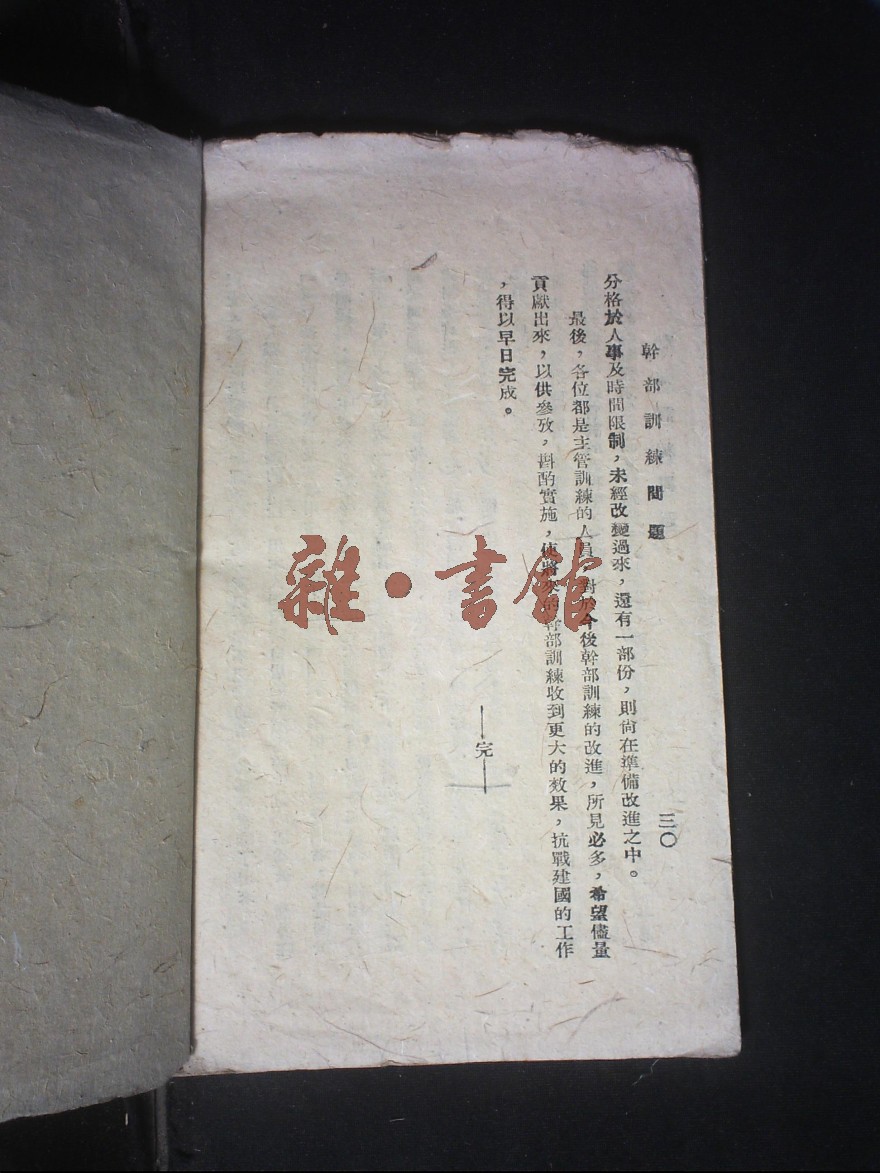 幹部訓練問題
三〇
分格於人事及時間限制，未經改變過來，還有一部份，則尚在準備改進之中。
最後，各位都是主管訓練的人員，對於今後幹部訓練的改進，所見必多，希望儘量
貢獻出來，以供參攷，斟酌實施，使將來的幹部訓練收到更大的效果，抗戰建國的工作
，得以早日完成。
——完——
雜·書館